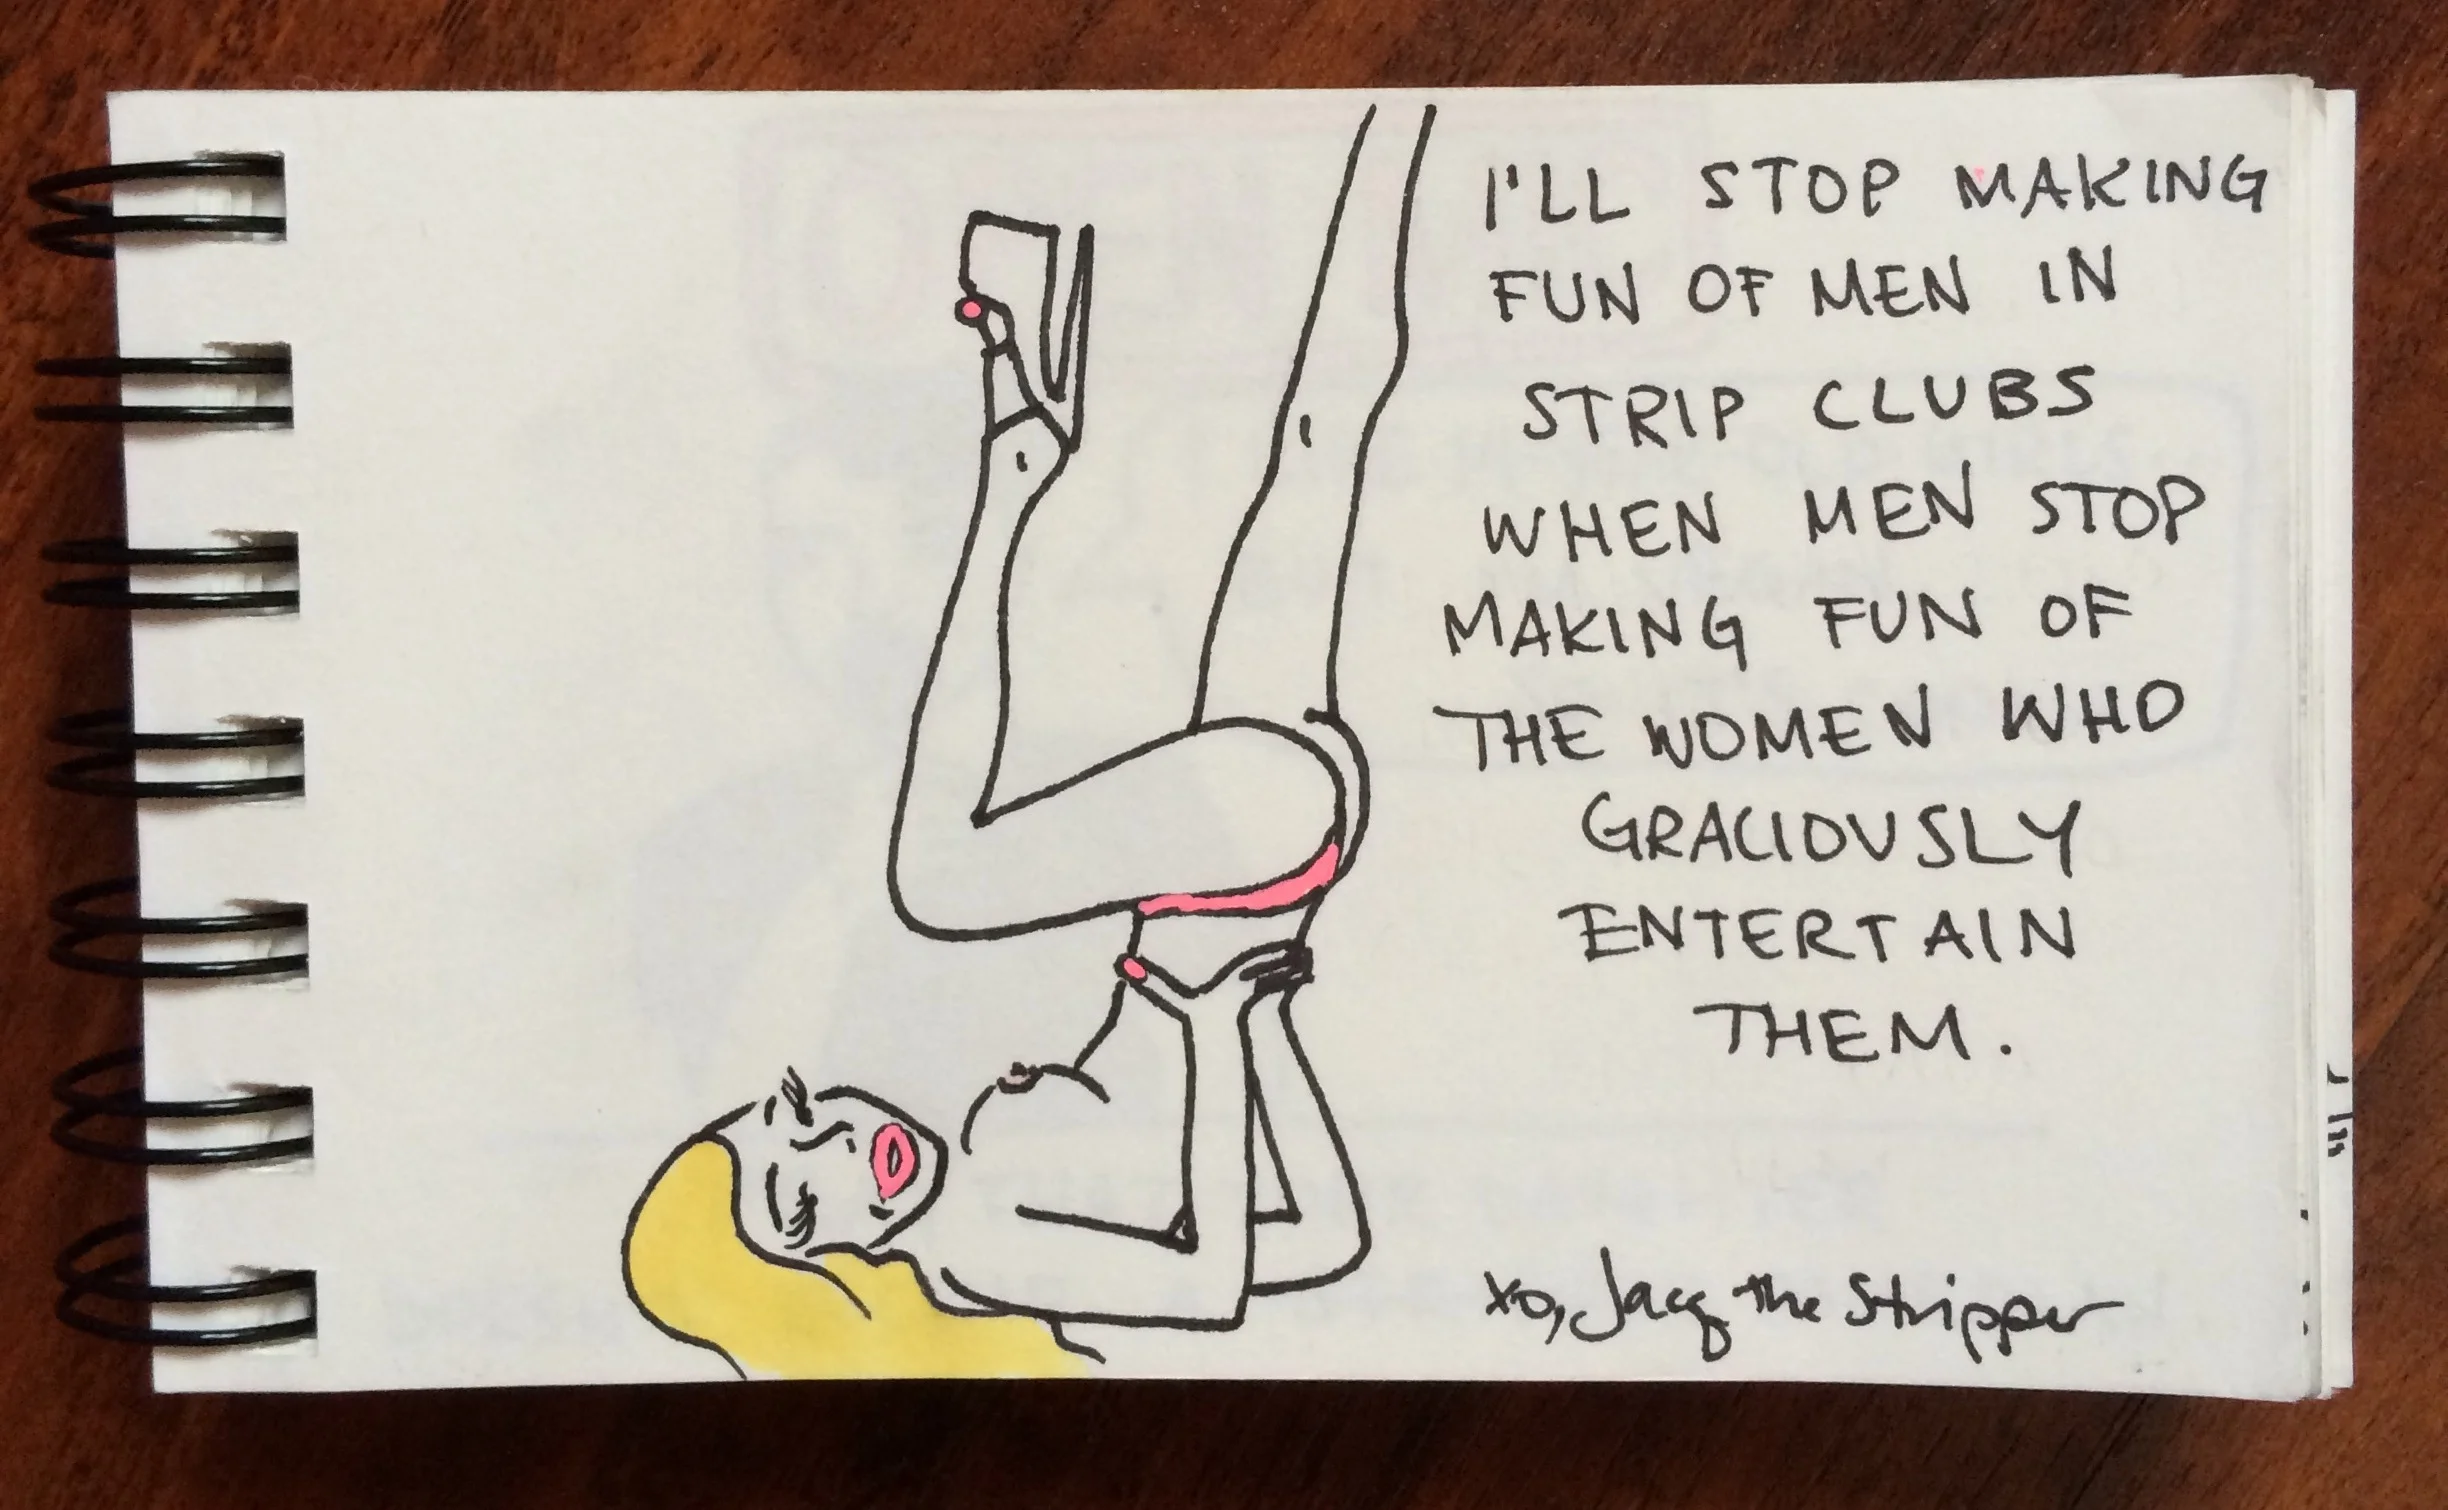 I'LL STOP MAKING
FUN OF MEN IN
STRIP CLUBS
WHEN MEN STOP
MAKING FUN OF
THE WOMEN WHO
GRACIOUSLY
ENTERTAIN
THEM.
xo, Jacq the Stripper